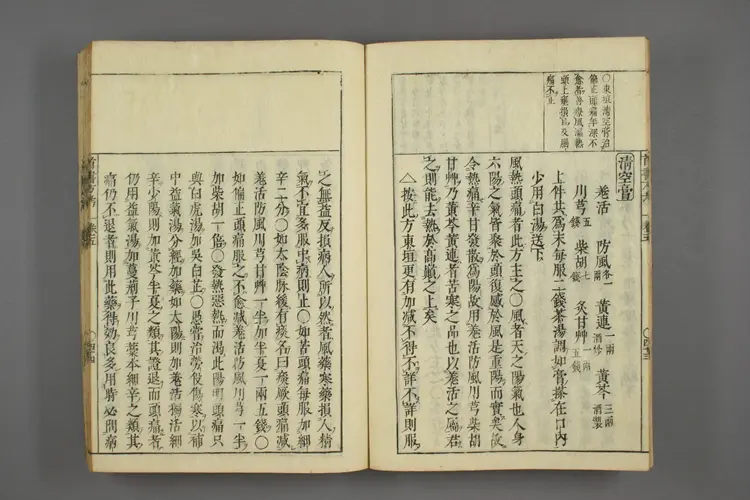 ○東垣清空膏治
偏正頭痛年深不
愈者善療風濕熱
頭上壅損目及腦
痛不止
清空膏
羌活 防風各一兩 黃連一兩酒炒 黃芩三兩酒製
川芎五錢 柴胡七錢 炙甘艸一兩五錢
上件共為末每服二錢茶湯調如膏搽在口內
少用白湯送下
風熱頭痛者此方主之○風者天之陽氣也人身
六陽之氣皆聚於頭復感於風是重陽而實矣故
令熱痛辛甘發散為陽故用羌活防風川芎柴胡
甘艸乃黃芩黃連者苦寒之品也以羌活之屬君
之則能去熱於高巔之上矣
△按此方東垣更有加減不得不詳不詳則服
之無益反損病人所以然者風藥寒藥損人精
氣不宜多服中病則止○如苦頭痛每服加細
辛二分○如太陰脉緩有痰名曰痰厥頭痛減
羌活防風川芎甘艸一半加半夏一兩五錢○
如偏正頭痛服之不愈減羌活防風川芎一半
加柴胡一倍○發熱惡熱而渴此陽明頭痛只
與白虎湯加吳白芷○愚嘗治勞役傷寒以補
中益氣湯分經加藥如太陽則加羌活獨活細
辛少陽則加黃芩半夏之類其證退而頭痛者
仍用益氣湯加蔓荊子川芎藁本細辛之類其
痛仍不退者則用此藥得効良多用時必問痛